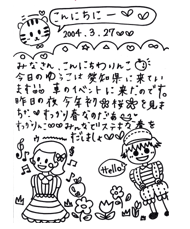 こんにちにー
2004.3.27
みなさん、こんにちわりんご
今日のゆうこは愛知県に来てい
ます。車のイベントに来たのです。
昨日の夜今年初桜を見ま
した すっかり春なのだ
すっかりみんなでステキな春を
だしましょ
Hello!